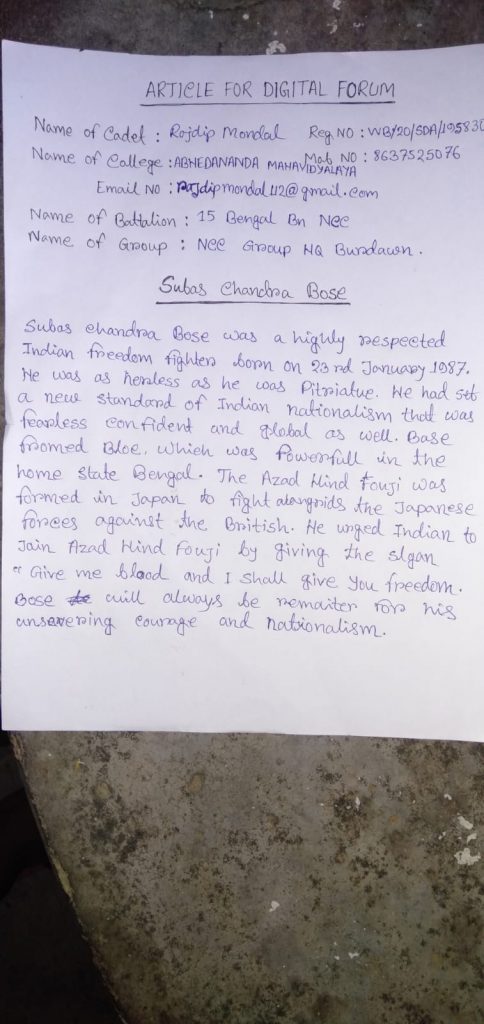 ARTICLE FOR DIGITAL FORUM
Name of Cadet : Rajdip Mondal Reg NO : WB/20/SDA/195830
Name of College : ABHEDANANDA MAHAVIDYALAYA Mob NO : 8637525076
Email NO : Rajdipmondal112@gmail.com
Name of Battalion : 15 Bengal Bn NCC
Name of Group : NCC Group HQ Burdawn .
Subas Chandra Bose
Subas chandra Bose was a highly respected
Indian freedom fighter born on 23 rd January 1987.
He was as herless as he was Pitriatue. He had set
a new standard of Indian nationalism that was
fearless confident and global as well. Base
fromed Bloe. which was Powerfull in the
home state Bengal. The Azad Hind Fouji was
formed in Japan to fight alangrids the Japanese
forces against the British. He urged Indian to
Jain Azad Hind Fouji by giving the slgan
" Give me blood and I shall give you freedom.
Bose will always be remaiter for his
unsevering courage and nationalism.